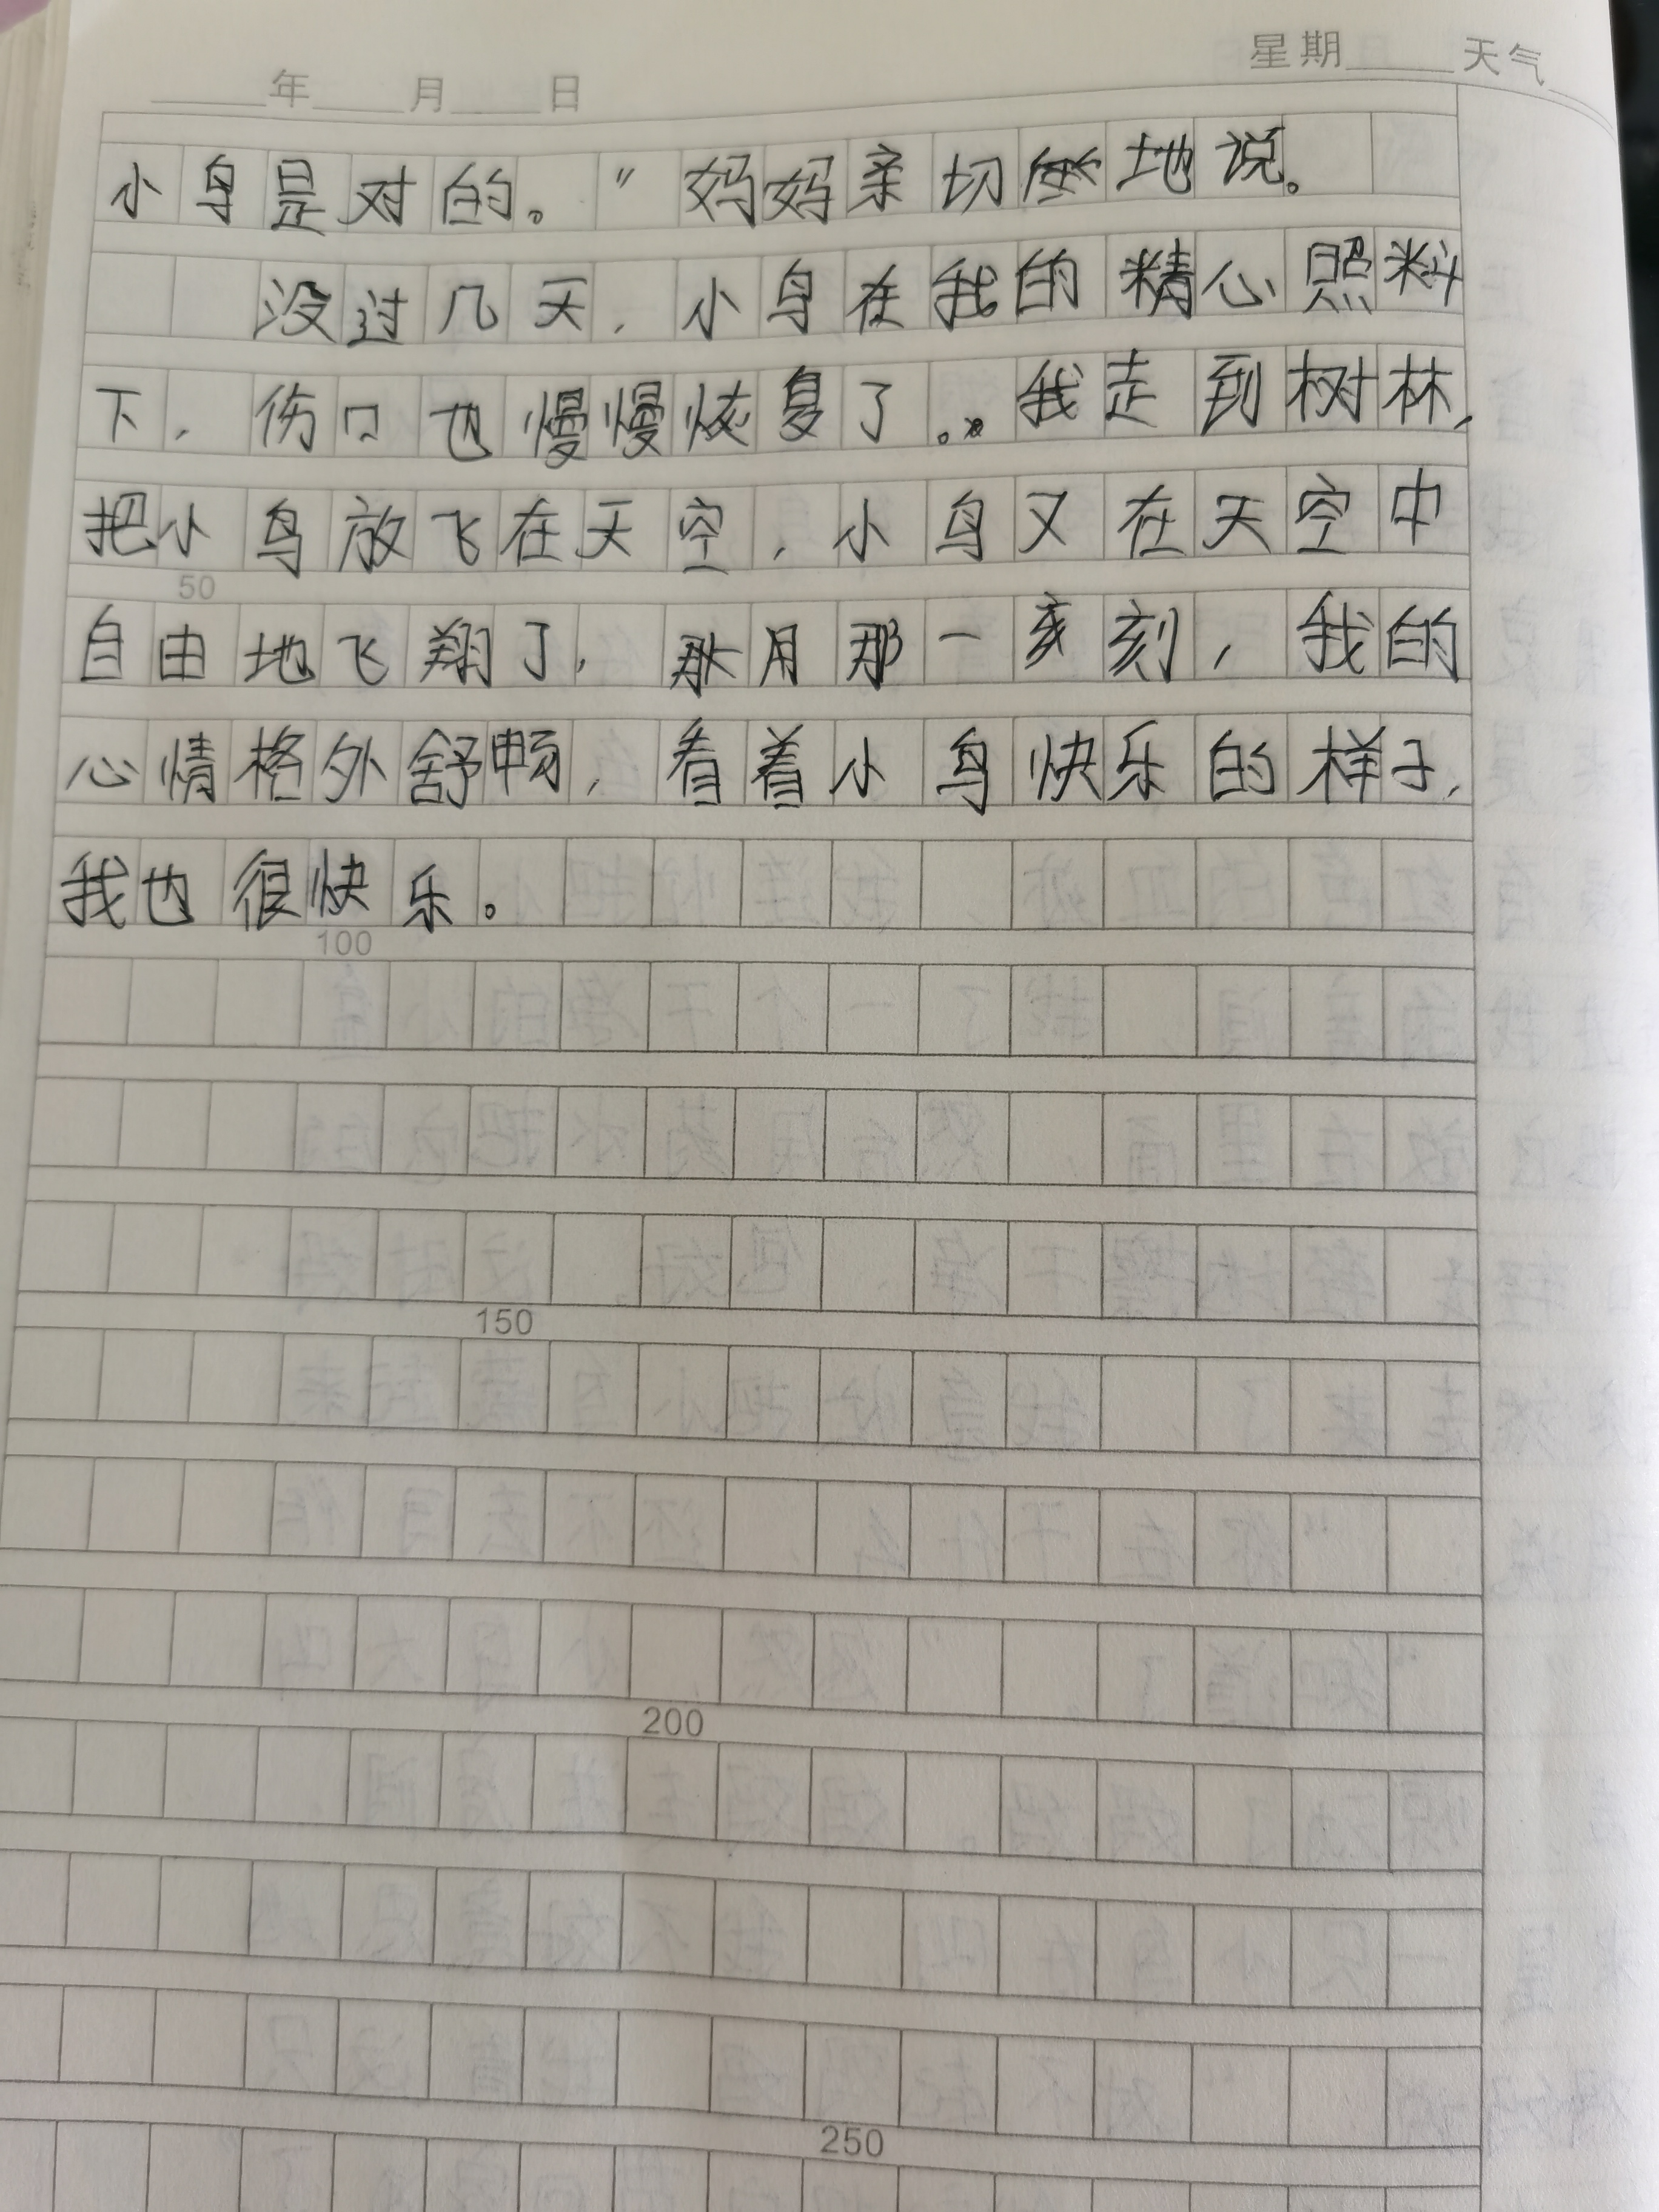 年 月 日 星期 天气
小鸟是对的。”妈妈亲切地说。
没过几天，小鸟在我的精心照料
下，伤口也慢慢恢复了。我走到树林，
把小鸟放飞在天空，小鸟又在天空中
50
自由地飞翔了，那一刻，我的
心情格外舒畅，看着小鸟快乐的样子，
我也很快乐。
100
150
200
250